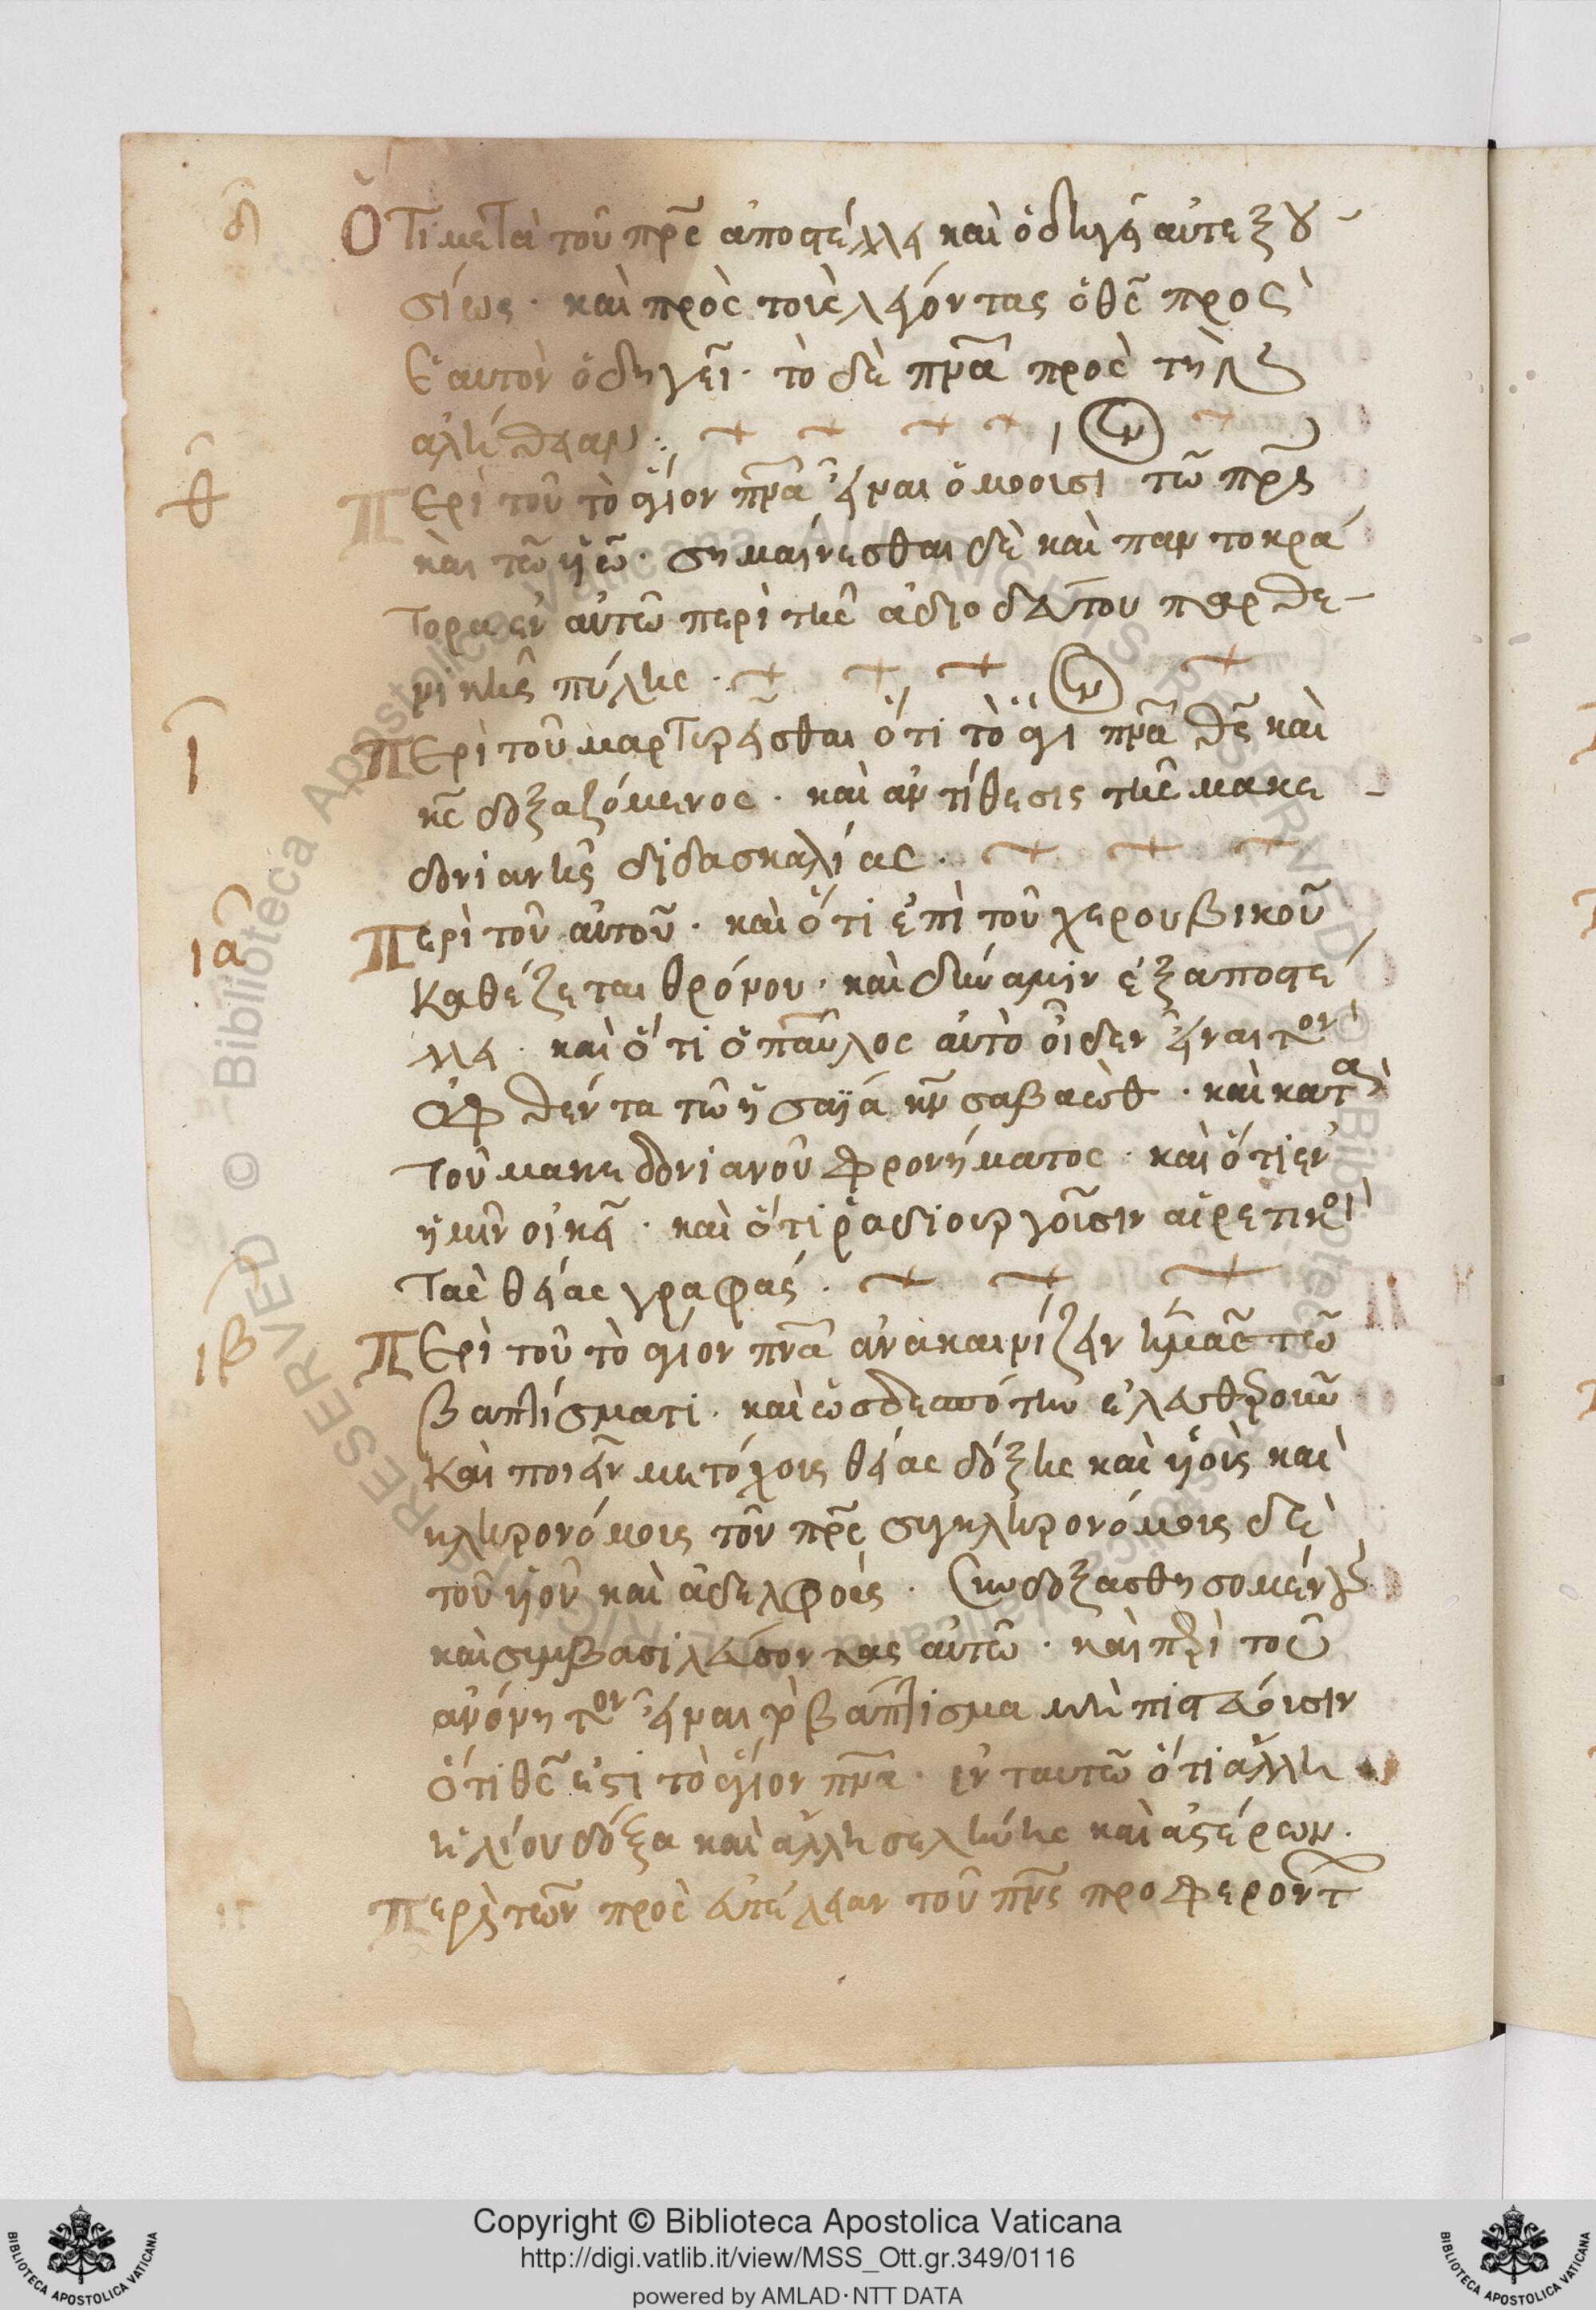 η
Ὅτι μετὰ τοῦ πρς ἀποστέλλει καὶ ὁδηγεῖ αὐτεξου
σίως· καὶ πρὸς τοὺς ὅθεν πρὸς
ἑαυτὸν ὁδηγεῖ· τὸ δὲ πνα πρὸς τὴν
ἀλήθειαν:
θ
Περὶ τοῦ τὸ ἅγιον πνα εἶναι ὁμοούσιον τῶ πρς
καὶ τῶ υἱῶ· σημαίνεσθαι δὲ καὶ παντοκρά
τορα ἐν αὐτῶ περὶ τῆς ἀδιοδεύτου παρθε
νικῆς πύλης·
ι
Περὶ τοῦ μαρτυρεῖσθαι ὅτι τὸ ἅγι πνα θς καὶ
κς δοξαζόμενος· καὶ ἀντίθεσις τῆς μακε
δονιανῆς διδασκαλίας·
ια
Περὶ τοῦ αὐτοῦ· καὶ ὅτι ἐπὶ τοῦ χερουβικοῦ
καθέζεται θρόνου· καὶ δύναμιν ἐξαποστέ
λλει· καὶ ὅτι ὁ παῦλος αὐτὸ οἶδεν εἶναι τὸν
ὀφθέντα τῶ ἡσαϊά κν σαβαὼθ· καὶ κατὰ
τοῦ μακεδονιανοῦ φρονήματος· καὶ ὅτι ἐν
ἡμῖν οἰκεῖ· καὶ ὅτι ῥαδιουργοῦσιν αἱρετικοὶ
τὰς θείας γραφάς·
ιβ
Περὶ τοῦ τὸ ἅγιον πνα ἀνακαινίζειν ἡμᾶς τῶ
βαπτίσματι· καὶ ὡς δεσπότην ἐλευθεροῦν
καὶ ποιεῖν μετόχους θείας δόξης καὶ υἱοὺς καὶ
κληρονόμους τοῦ πρς συγκληρονόμους δὲ
τοῦ υἱοῦ καὶ ἀδελφοὺς· συνδοξασθησομένους
καὶ συμβασιλεύσοντας αὐτῶ· καὶ περὶ τοῦ
ἀνόνητον εἶναι τὸ βάπτισμα μὴ πιστεύουσιν
ὅτι θς ἐστι τὸ ἅγιον πνα· ἐν ταυτῶ ὅτι ἄλλη
ἡλίου δόξα καὶ ἄλλη σελήνης καὶ ἀστέρων·
ιγ
Περὶ τῶν πρὸς εὐτέλειαν τοῦ πνς προφερόντ
Copyright © Biblioteca Apostolica Vaticana
http://digi.vatlib.it/view/MSS_Ott.gr.349/0116
powered by AMLAD·NTT DATA